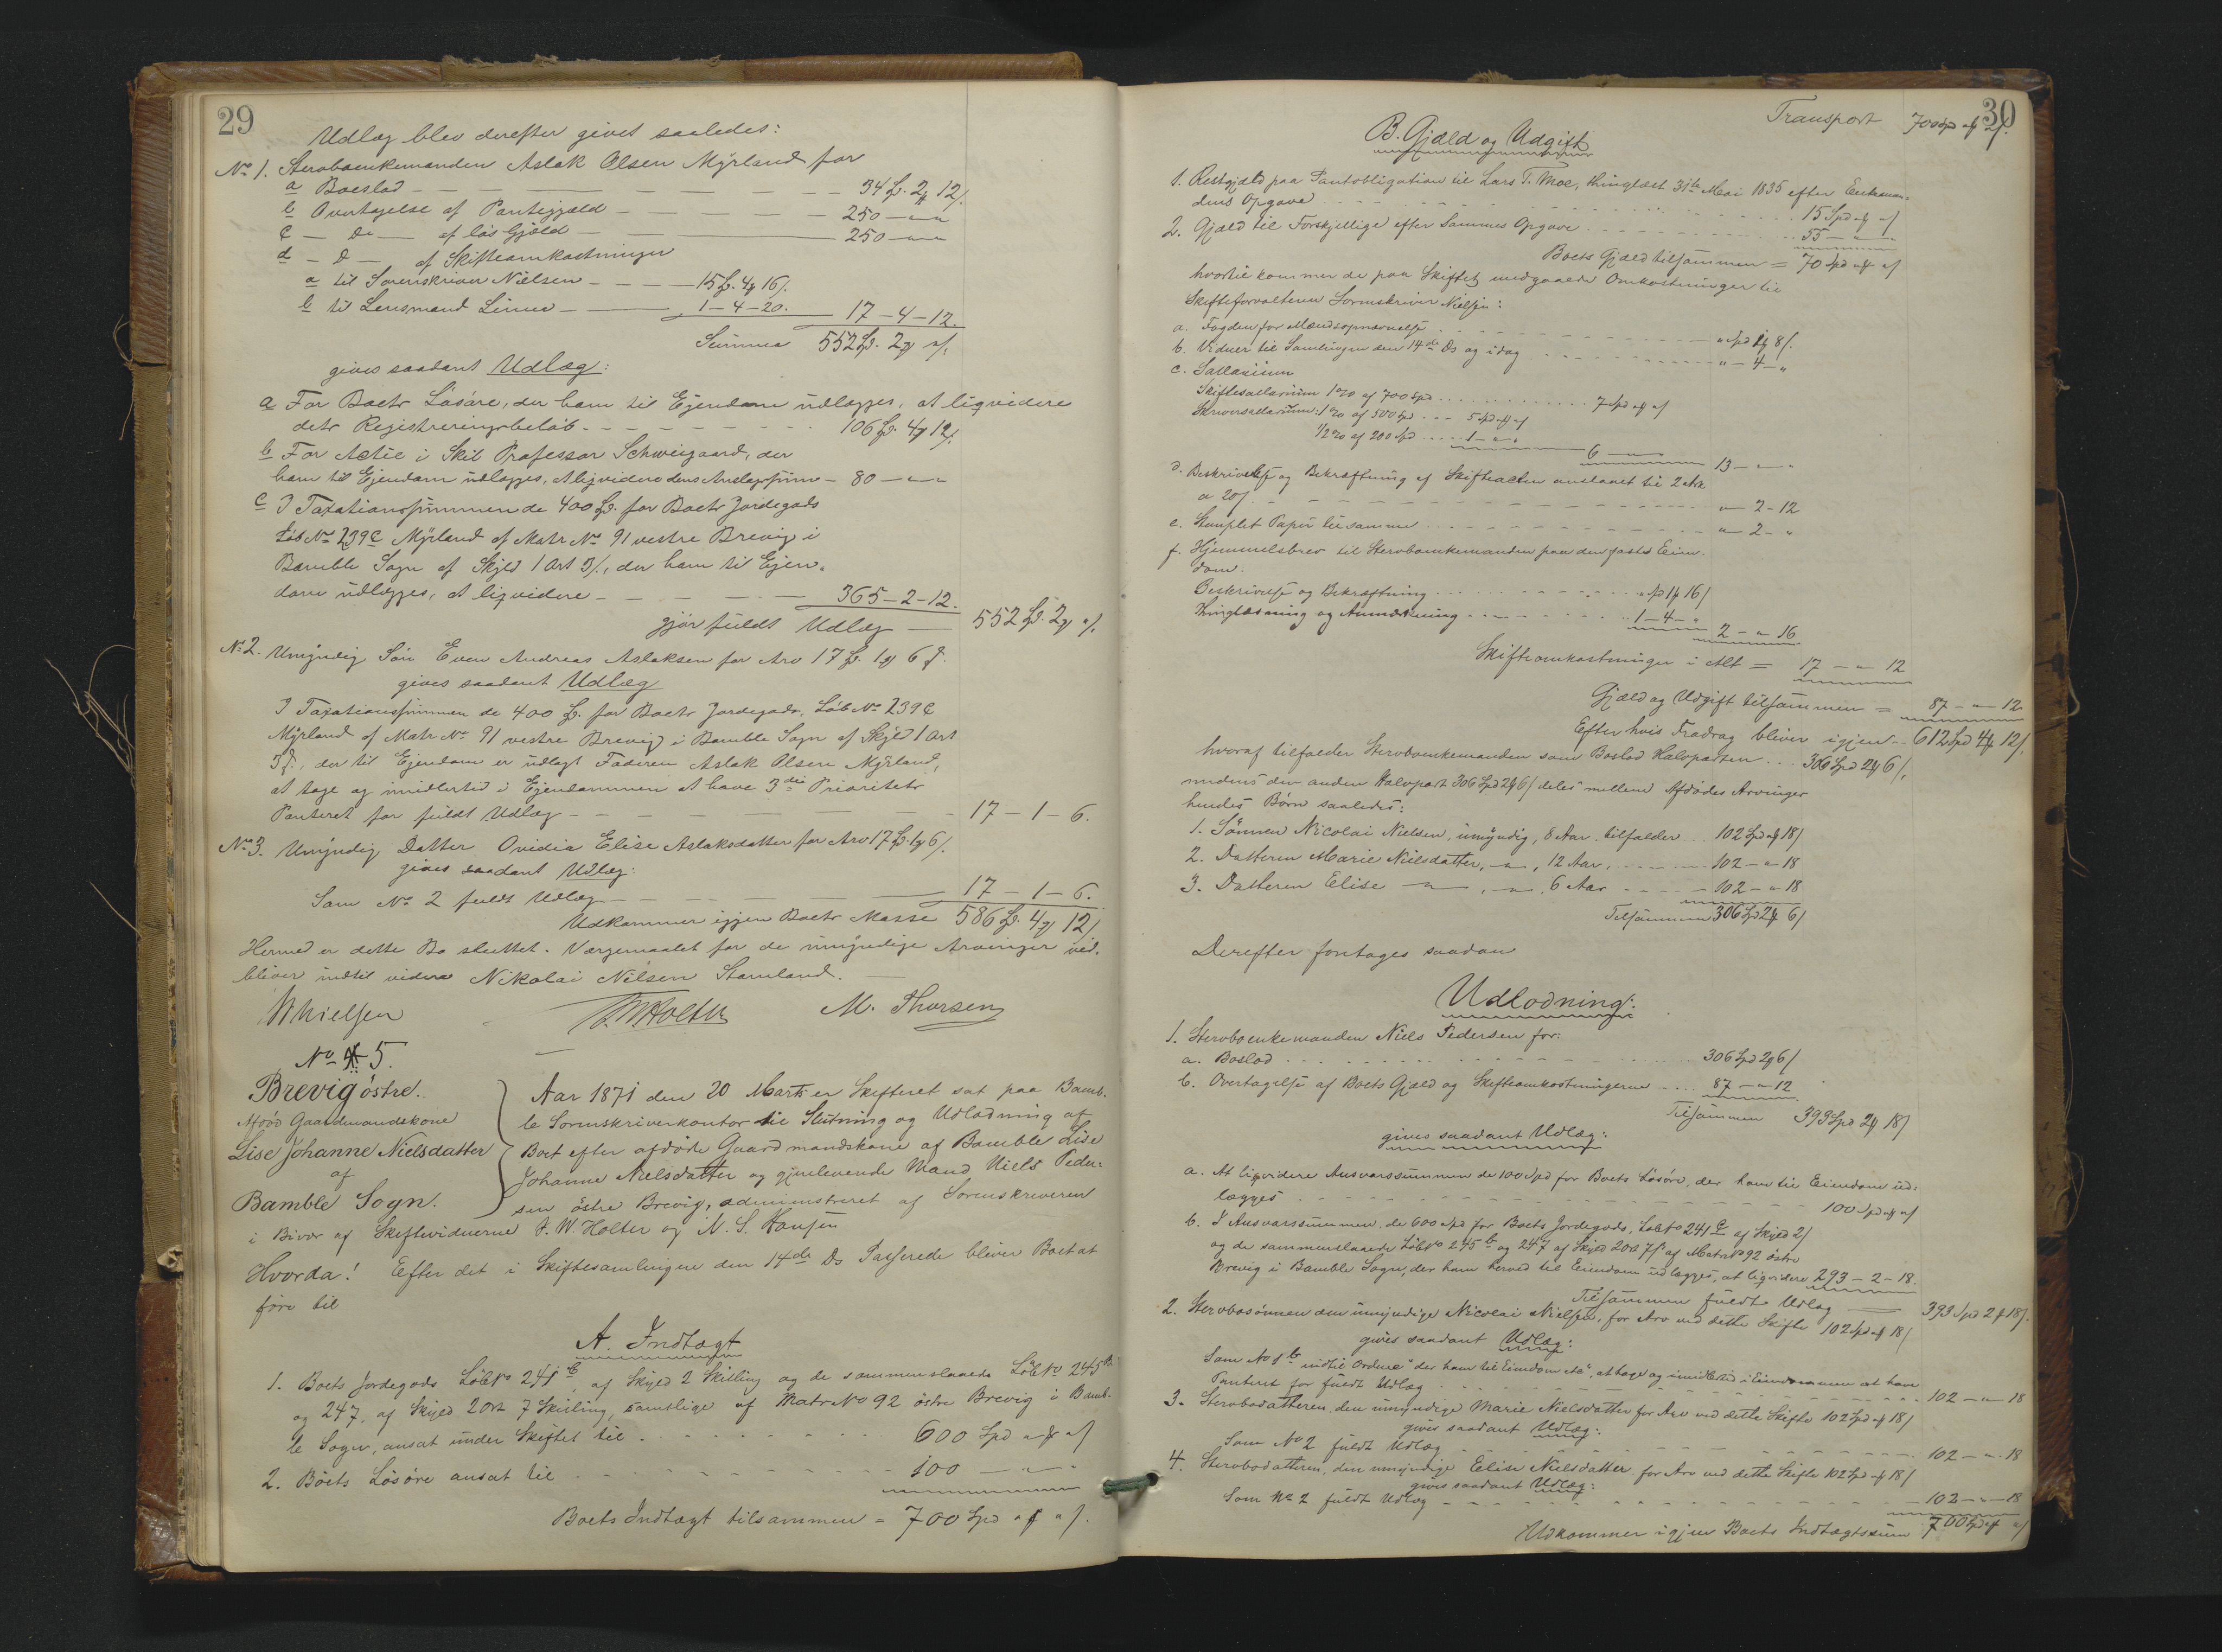 29
Udlæg blev derefter givet saaledes:
No 1. Sterboenkemanden Aslak Olsen Myrland for
a Boeslod — 34 Sp. 2 ort 12 s.
b Overtagelse af Pantegjæld — 250 — " — "
c — Do — af løs Gjæld — 250 — " — "
d — D — af Skifteomkostninger
a til Sorenskriver Nielsen — 15 Sp. 4 ort 16 s.
b til Lensmand Linna — 1 — 4 — 20. 17 — 4 — 12.
Summa 552 Sp. 2 ort " s.
gives saadant Udlæg:
a For Boets Løsøre, der ham til Ejendom udlægges, at liqvidere
dets Registreringsbeløb — 106 Sp. 4 ort 12 s.
b For Actie i Skib Professor Schweigaard, der
ham til Ejendom udlægges, at liqvidere dens Anslagssum — 80 — " — "
c I Taxationssummen de 400 Sp. for Boets Jordegods
Løb No 239c Myrland af Matr No 91 vestre Brevig i
Bamble Sogn af Skyld 1 Ort 3 s., der ham til Ejen-
dom udlægges, at liqvidere — 365 — 2 — 12.
gjør fuldt Udlæg — 552 Sp. 2 ort " s.
No 2. Umyndig Søn Even Andreas Aslaksen for Arv 17 Sp. 1 ort 6 s.
gives saadant Udlæg
I Taxationssummen de 400 Sp. for Boets Jordegods, Løb No 239c
Myrland af Matr No 91 vestre Brevig i Bamble Sogn af Skyld 1 Ort
3 s., der til Ejendom er udlagt Faderen Aslak Olsen Myrland,
at tage og imidlertid i Ejendommen at have 3die Prioritets
Panteret for fuldt Udlæg — 17 — 1 — 6.
No 3. Umyndig Datter Ovidia Elise Aslaksdatter for Arv 17 Sp. 1 ort 6 s.
gives saadant Udlæg:
Som No 2 fuldt Udlæg — 17 — 1 — 6.
Udkommer igjen Boets Masse 586 Sp. 4 ort 12 s.
Hermed er dette Bo sluttet. Værgemaalet for de umyndige Arvinger ved-
bliver indtil videre Nikolai Nilsen Stamland. —
Nielsen J. W. Holter M. Thorsen
No 5.
Brevig østre.
Afdød Gaardmandskone
Lise Johanne Nielsdatter
af
Bamble Sogn.
Aar 1871 den 20 Marts er Skifteret sat paa Bamb-
le Sorenskriverkontor til Slutning og Udlodning af
Boet efter afdøde Gaardmandskone af Bamble Lise
Johanne Nielsdatter og gjenlevende Mand Niels Peder-
sen østre Brevig, administreret af Sorenskriveren
i Bivær af Skiftevidnerne J. W. Holter og N. S. Hansen
Hvorda! Efter det i Skiftesamlingen den 14de Ds Passerede bliver Boet at
føre til
A. Indtægt
1. Boets Jordegods Løb No 241 c, af Skyld 2 Skilling og de sammenslaaede Løb No 245 b
og 247, af Skyld 2 Ort 7 Skilling, samtlige af Matr No 92 østre Brevig i Bamb-
le Sogn, ansat under Skiftet til . . . 600 Spd " ort " s
2. Boets Løsøre ansat til . . . 100 — " — "
Boets Indtægt tilsammen = 700 Spd " ort " s.
30
Transport 700 Spd " ort " s.
B. Gjæld og Udgift
1. Restgjæld paa Pantobligation til Lars T. Moe, thinglæst 31te Mai 1835 efter Enkeman-
dens Opgave . . . 15 Spd " ort " s
2. Gjæld til Forskjellige efter Sammes Opgave . . . 55 — " — "
Boets Gjæld tilsammen = 70 Spd " ort " s
hvortil kommer de paa Skiftet medgaaede Omkostninger til
Skifteforvalteren Sorenskriver Nielsen:
a. Fogden for Mændsopnævnelse . . . " Spd 1 ort 8 s.
b. Vidner til Samlingen den 14de Ds og idag . . . " — 4 — "
c. Sallarium
Skiftesallarium 1% af 700 Spd . . . 7 Spd " ort " s
Skriversallarium: 1% af 500 Spd . . . 5 Spd " ort " s
1/2% af 200 Spd . . . 1 — " — "
6 — " — " 13 — " — "
d. Beskrivelse og Bekræftning af Skifteacten anslaaet til 2 Ark
a 20 s. . . . " — 2 — 12
e. Stemplet Papir til samme . . . " — 2 — "
f. Hjemmelsbrev til Sterboenkemanden paa den faste Eien-
dom.
Beskrivelse og Bekræftning . . . " Sp 1 ort 16 s
Thinglæsning og Anmærkning . . . 1 — 4 — "
2 — " 16
Skifteomkostninger i Alt = 17 — " 12
Gjæld og Udgift tilsammen = 87 — " — 12
Efter hvis Fradrag bliver igjen . . 612 Spd 4 ort 12 s.
hvoraf tilfalder Sterboenkemanden som Boslod Halvparten . . . 306 Spd 2 ort 6 s.
medens den anden Halvpart 306 Spd 2 ort 6 s deles mellem Afdødes Arvinger
hendes Børn saaledes:
1. Sønnen Nicolai Nielsen, umyndig, 8 Aar, tilfalder . . 102 Spd " ort 18 s
2. Datteren Marie Nielsdatter, — " —, 12 Aar, . . . 102 — " 18
3. Datteren Elise — " —, — " —, 6 Aar . . . 102 — " 18
Tilsammen 306 Spd 2 ort 6 s
Derefter foretages saadan
Udlodning:
1. Sterboenkemanden Niels Pedersen for:
a. Boslod . . . 306 Spd 2 ort 6 s
b. Overtagelse af Boets Gjæld og Skifteomkostningerne . . . 87 — " — 12
Tilsammen 393 Spd 2 ort 18 s
gives saadant Udlæg:
a. At liqvidere Ansvarssummen de 100 Spd for Boets Løsøre, der ham til Eiendom ud-
lægges . . . 100 Spd " ort " s
b. I Ansvarssummen, de 600 Spd for Boets Jordegods, Løb No 241 c af Skyld 2 s
og de sammenslaaede Løb No 245 b og 247 af Skyld 2 Ort 7 s af Matr No 92 østre
Brevig i Bamble Sogn, der ham herved til Eiendom udlægges, at liqvidere 293 — 2 — 18.
Tilsammen fuldt Udlæg — 393 Spd 2 ort 18 s.
2. Sterbosønnen den umyndige Nicolai Nielsen, for Arv ved dette Skifte 102 Spd " ort 18 s
gives saadant Udlæg:
Som No 1 b indtil Ordene "der ham til Eiendom etc", at tage og imidlertid i Eiendommen at have
Panteret for fuldt Udlæg . . . 102 — " — 18
3. Sterbodatteren, den umyndige Marie Nielsdatter for Arv ved dette Skifte 102 Spd " ort 18 s
gives saadant Udlæg:
Som No 2 fuldt Udlæg . . . 102 — " — 18
4. Sterbodatteren, den umyndige Elise Nielsdatter for Arv ved dette Skifte 102 Spd " ort 18 s
gives saadant Udlæg:
Som No 2 fuldt Udlæg . . . 102 — " — 18
Udkommer igjen Boets Indtægtssum 700 Spd " ort " s